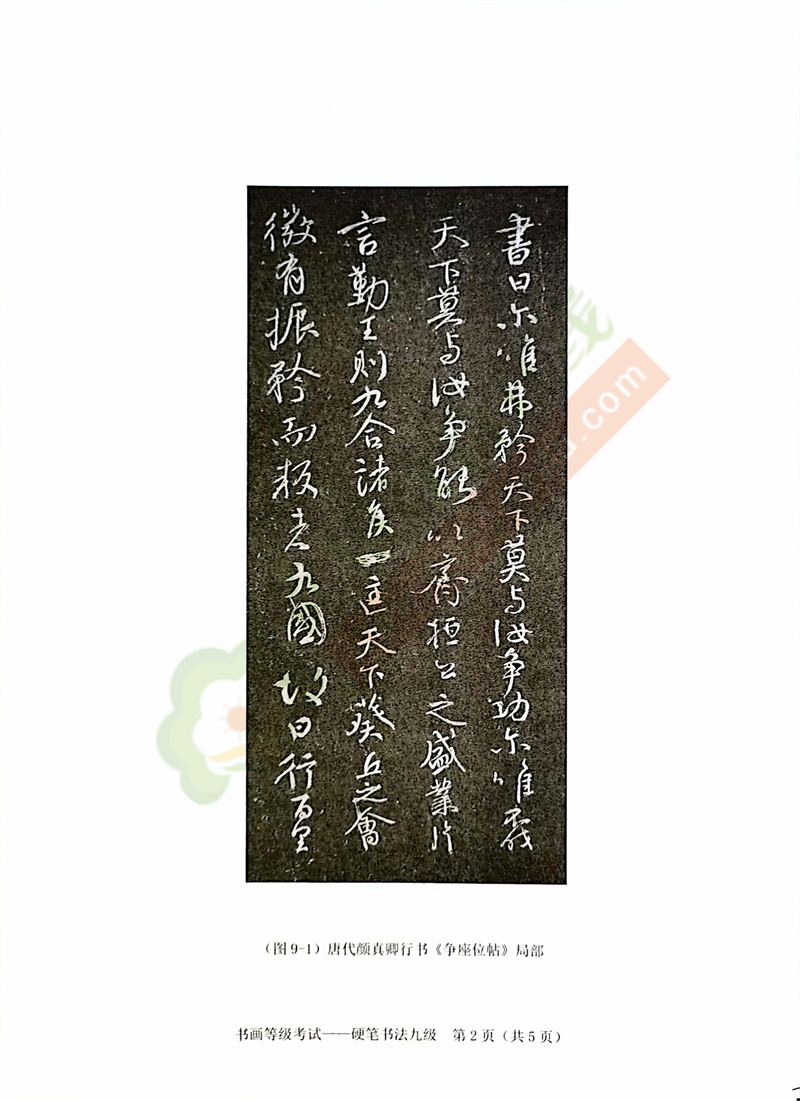 書曰尔唯弗矜天下莫与汝争功尔唯不伐
天下莫与汝争能以齊桓公之盛業片
言勤王則九合諸侯一匡天下葵丘之會
微有振矜而叛者九國故曰行百里
.com
(图 9-1)唐代颜真卿行书《争座位帖》局部
书画等级考试——硬笔书法九级 第 2 页(共 5 页)